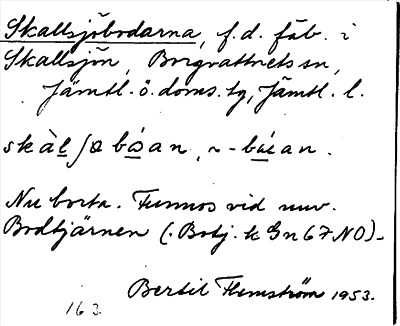 Skallsjöbodarna, f.d. fäb. i
Skallsjön, Borgvattnets sn,
Jämtl. ö. doms. tg, Jämtl. l.
skàl̲ʃø bó̲̲an, ~ -bú̲̲an.
Nu borta. Funnos vid nuv.
Bodtjärnen (. Botj. k Gn 67 NO).
Bertil Flemström 1953.
163